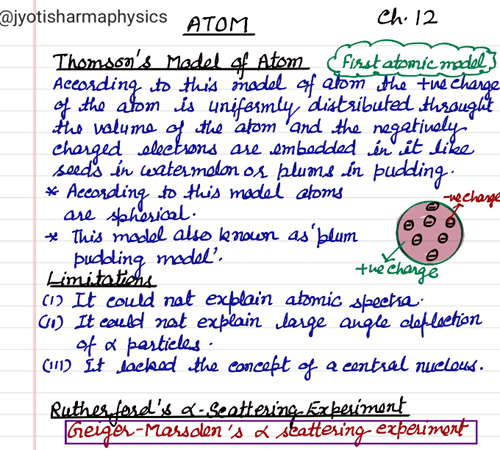 @jyotisharmaphysics
ATOM
Ch. 12
Thomson's Model of Atom
First atomic model
According to this model of atom the +ve charge
of the atom is uniformly distributed throught
the volume of the atom and the negatively
charged electrons are embedded in it like
seeds in watermelon or plums in pudding.
* According to this model atoms
are spherical.
-ve charge
* This model also known as 'plum
pudding model'.
+ve charge
Limitations
(i) It could not explain atomic spectra.
(ii) It could not explain large angle deflection
of α particles.
(iii) It lacked the concept of a central nucleus.
Rutherford's α-Scattering Experiment
Geiger-Marsden's α scattering experiment